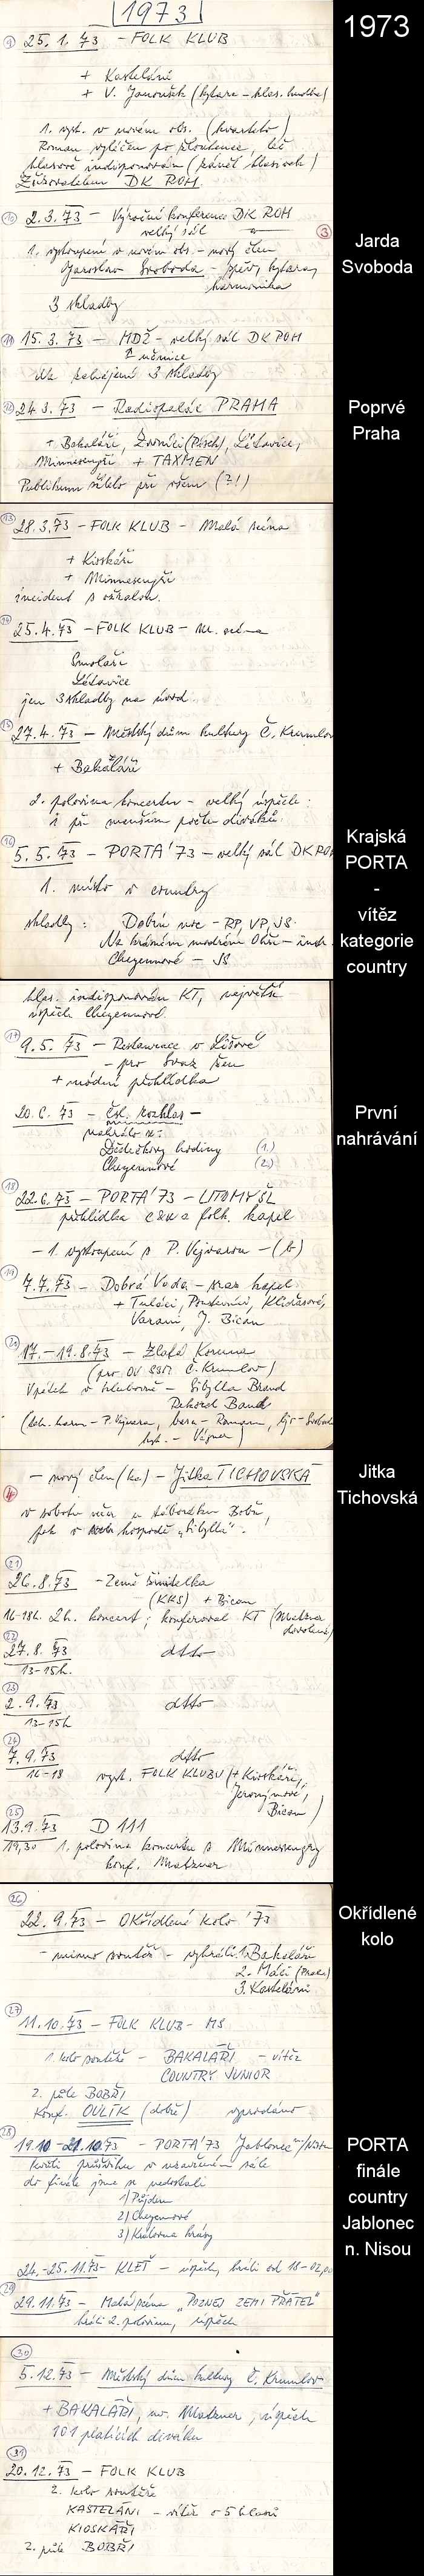 1973
1973
25. 1. 73 - FOLK KLUB
+ Kasteláni
+ V. Janoušek (kytara - klas. hudba)
1. vyst. v novém obs. (kvarteto)
Roman vyléčen po žloutence, leč
hlasově indisponován (zánět hlasivek)
Zřizovatelem DK ROH.
2. 3. 73 - Výroční konference DK ROH
velký sál
3
1. vystoupení v novém obs. - nový člen
Jaroslav Svoboda - zpěv, kytara,
harmonika
3 skladby
Jarda
Svoboda
15. 3. 73 - MDŽ - velký sál DK ROH
Na zahájení 3 skladby
24. 3. 73 - Radiopalác PRAHA
+ Bakaláři, Zvoníci (Písek), Létavice,
Minnesengři + TAXMEN
Publikum při všem (?!)
Poprvé
Praha
13
28. 3. 73 - FOLK KLUB - Malá scéna
+ Kioskáři
+ Minnesengři
incident s ožralou.
14
25. 4. 73 - FOLK KLUB - M. scéna
Smolaři
Létavice
jen 3 skladby na úvod
15
27. 4. 73 - Městský dům kultury Č. Krumlov
+ Bakaláři
2. polovina koncertu - velký úspěch
i při menším počtu diváků.
16
5. 5. 73 - PORTA '73 - velký sál DK ROH
1. místo v country
skladby: Dobrou noc - RP, VP, JS.
Na krásném modrém Ohiu - instr.
Cheyennové - JS
Krajská
PORTA
-
vítěz
kategorie
country
hlas. indisponován KT, největší
úspěch Cheyennové
17
9. 5. 73 - Restaurace v Lišově
- pro Svaz žen
+ módní přehlídka
20. 6. 73 - Čsl. rozhlas -
nahrálo se:
Dědečkovy hodiny (1.)
Cheyennové (2.)
První
nahrávání
18
22. 6. 73 - PORTA '73 - LITOMYŠL
přehlídka c&w a folk. kapel
- 1. vystoupení s P. Vejvarou - (b)
19
7. 7. 73 - Dobrá Voda - sraz kapel
+ Tuláci, Poustevníci, Klíďasové,
Varani, J. Bican
20
17. - 19. 8. 73 - Zlatá Koruna
(pro OV SSM Č. Krumlov)
V pátek v klubovně - Sibylla Brand
Rekord Band
- nový člen (ka) - Jitka TICHOVSKÁ
4
v sobotu večer u táboráku Bobři,
pak v hospodě "Sibylla".
Jitka
Tichovská
21
26. 8. 73 - Země živitelka
(KKS) + Bican
16-18h. 2h. koncert; konferoval KT (Matzner
dovolená)
22
27. 8. 73 dtto
13-15h.
23
2. 9. 73 dtto
13-15h
24
7. 9. 73 dtto
16-18 vyst. FOLK KLUBU (+ Kioskáři,
Jeronýmové,
Bican)
25
13. 9. 73 D 111
19,30 1. polovina koncertu s Minnesengry
konf. Matzner
26
22. 9. 73 - Okřídlené kolo '73
- mimo soutěž - vyhráli: 1. Bakaláři
2. Máci (Praha)
3. Kasteláni
Okřídlené
kolo
27
11. 10. 73 - FOLK KLUB - MS
1. kolo soutěže - BAKALÁŘI - vítěz
COUNTRY JUNIOR
2. půle BOBŘI
konf. OULÍK (dobře) vyprodáno
28
19.10 - 21.10.73 - PORTA '73 Jablonec n/Nisou
kvůli průšvihu v uzavřeném sále
do finále jsme se nedostali
1) Půjdem
2) Cheyennové
3) Královna krásy
PORTA
finále
country
Jablonec
n. Nisou
24. - 25. 11. 73 - KLEŤ - úspěch, hráli od 18 - 02,00
29
29. 11. 73 - Malá scéna "POZNEJ ZEMI PŘÁTEL"
hráli 2. polovinu, úspěch
30
5. 12. 73 - Městský dům kultury Č. Krumlov
+ BAKALÁŘI, uv. Matzner, úspěch
101 platících diváků
31
20. 12. 73 - FOLK KLUB
2. kolo soutěže
KASTELÁNI - vítěz o 5 hlasů
KIOSKÁŘI
2. půle BOBŘI